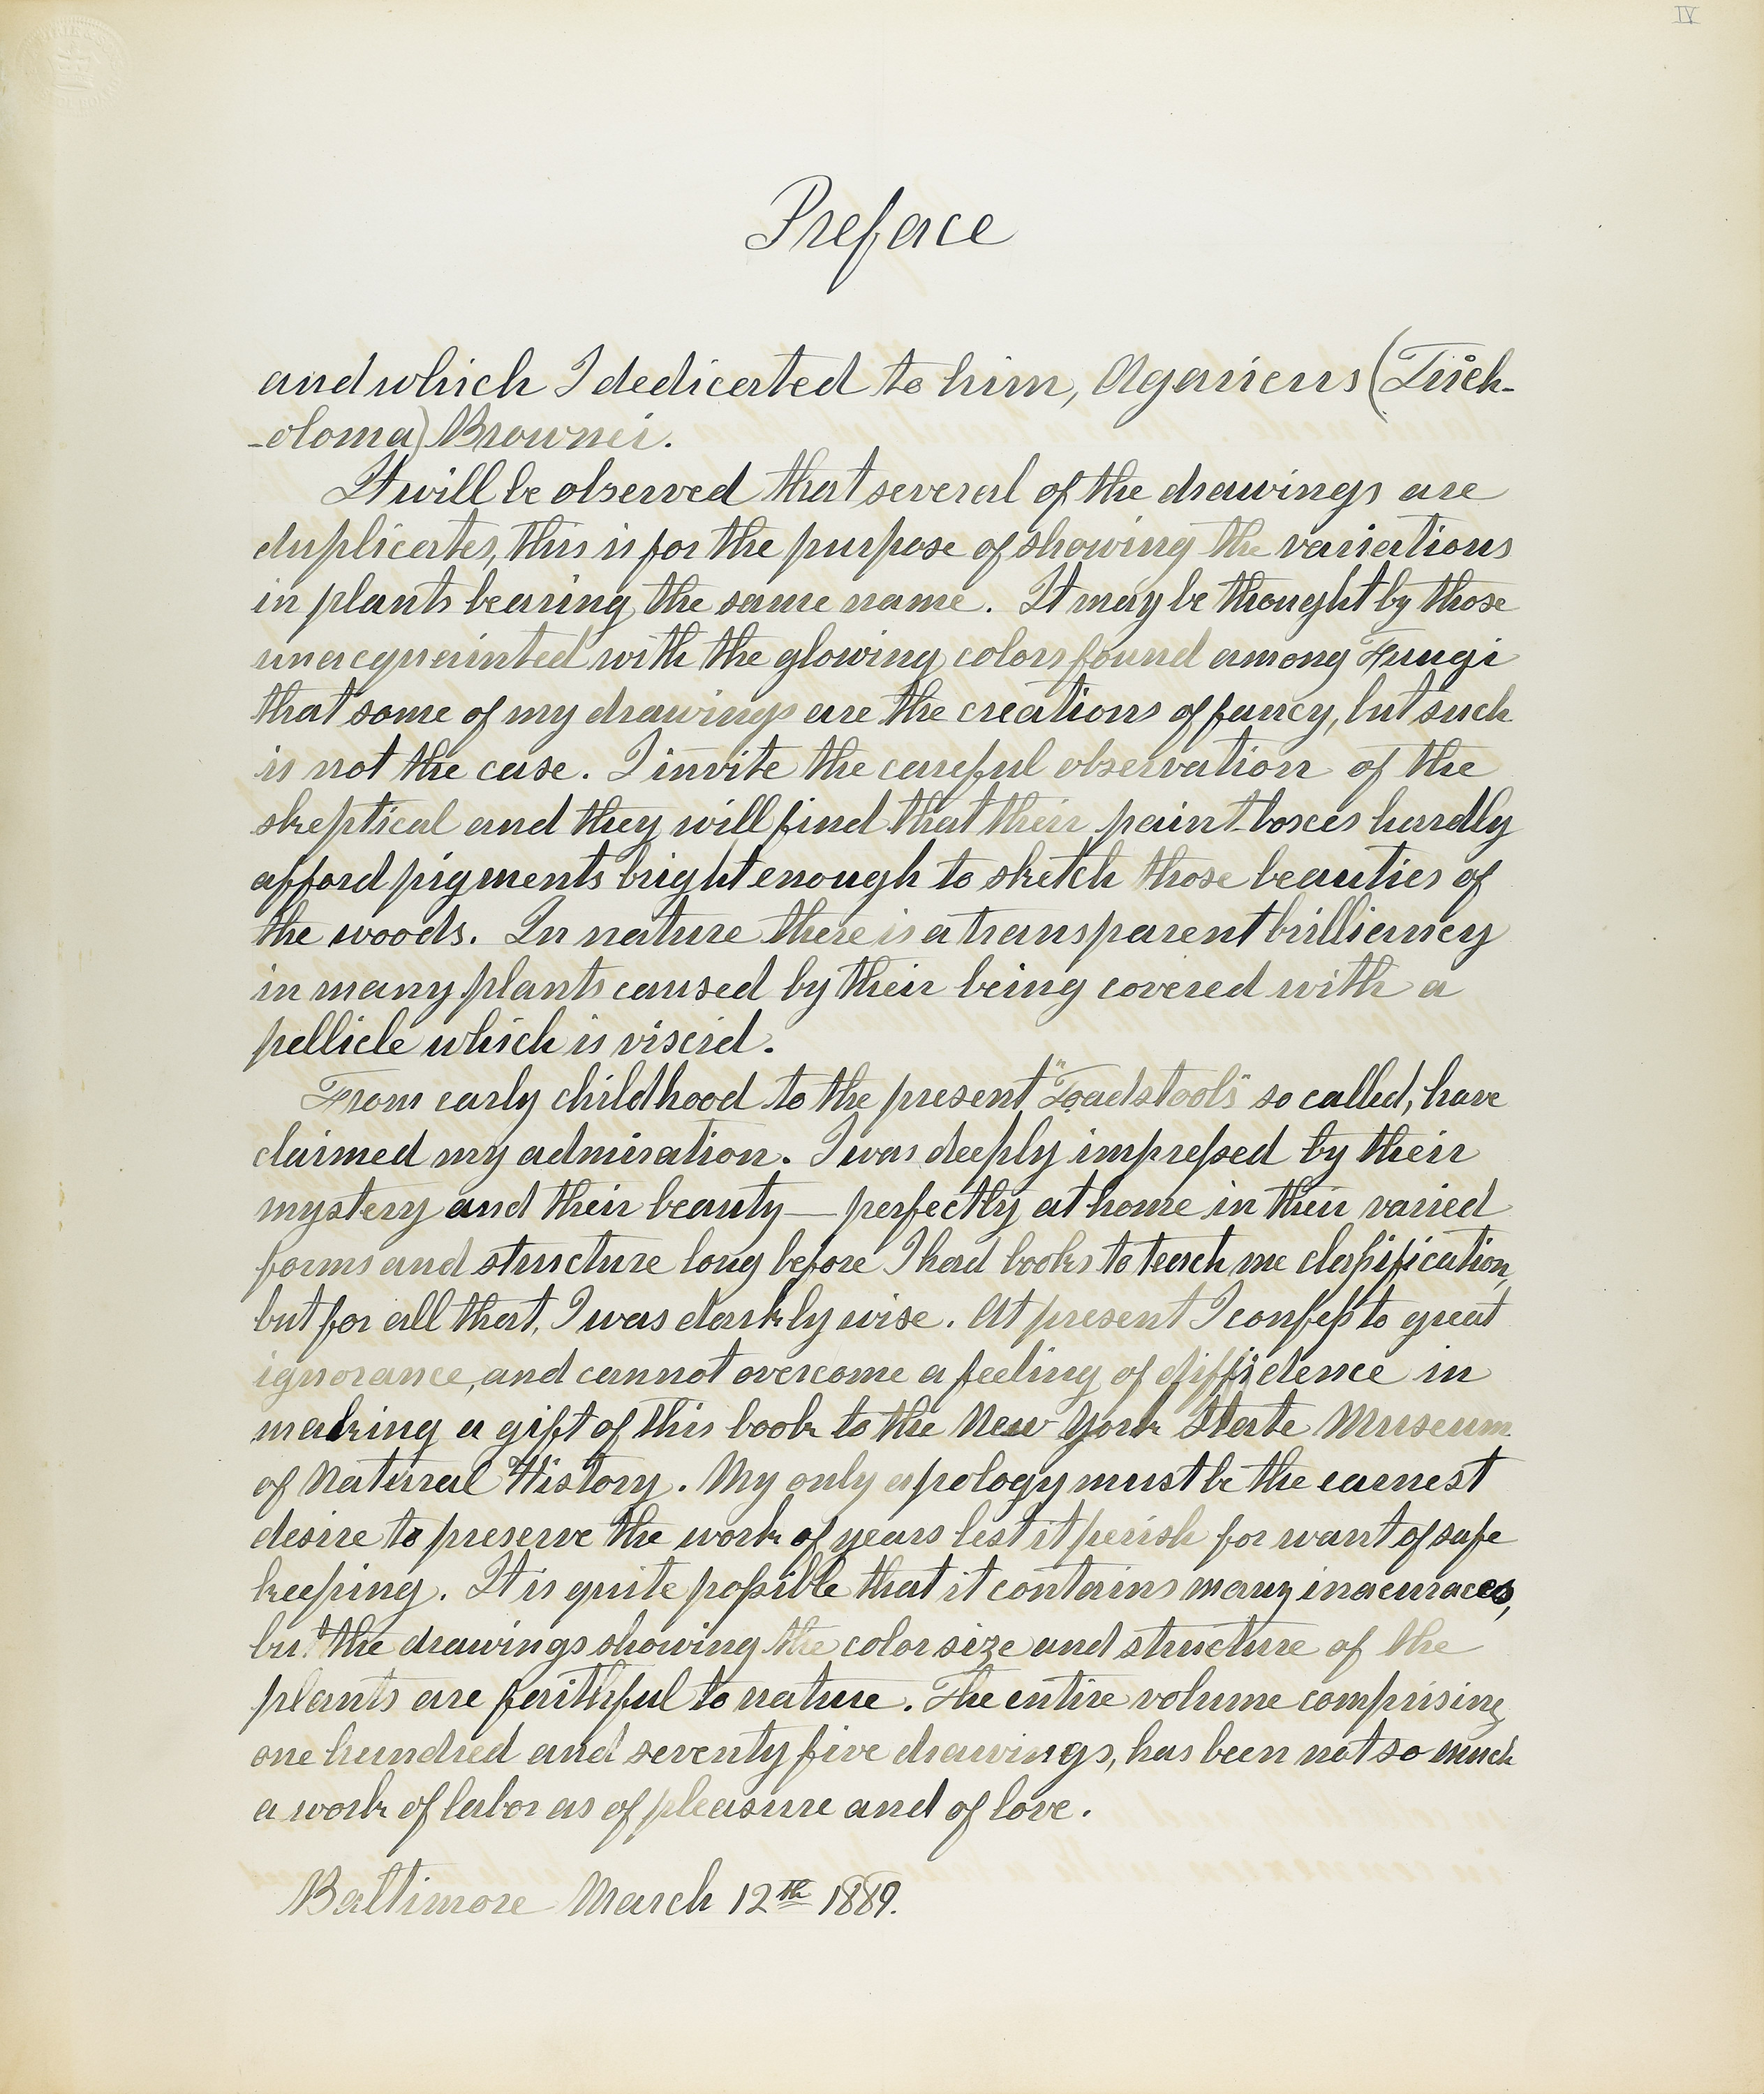 IV
Preface
and which I dedicated to him, Agaricus (Trich-
-oloma) Brownei.
It will be observed that several of the drawings are
duplicates, this is for the purpose of showing the variations
in plants bearing the same name. It may be thought by those
unacquainted with the glowing colors found among Fungi
that some of my drawings are the creations of fancy, but such
is not the case. I invite the careful observation of the
skeptical and they will find that their paint-boxes hardly
afford pigments bright enough to sketch those beauties of
the woods. In nature there is a transparent brilliancy
in many plants caused by their being covered with a
pellicle which is viscid.
From early childhood to the present "Toadstools" so called, have
claimed my admiration. I was deeply impressed by their
mystery and their beauty — perfectly at home in their varied
forms and structure long before I had books to teach me classification,
but for all that, I was darkly wise. At present I confess to great
ignorance, and cannot overcome a feeling of diffidence in
making a gift of this book to the New York State Museum
of Natural History. My only apology must be the earnest
desire to preserve the work of years lest it perish for want of safe
keeping. It is quite possible that it contains many inacuraces,
but the drawings showing the color size and structure of the
plants are faithful to nature. The entire volume comprising
one hundred and seventy five drawings, has been not so much
a work of labor as of pleasure and of love.
Baltimore March 12th 1889.